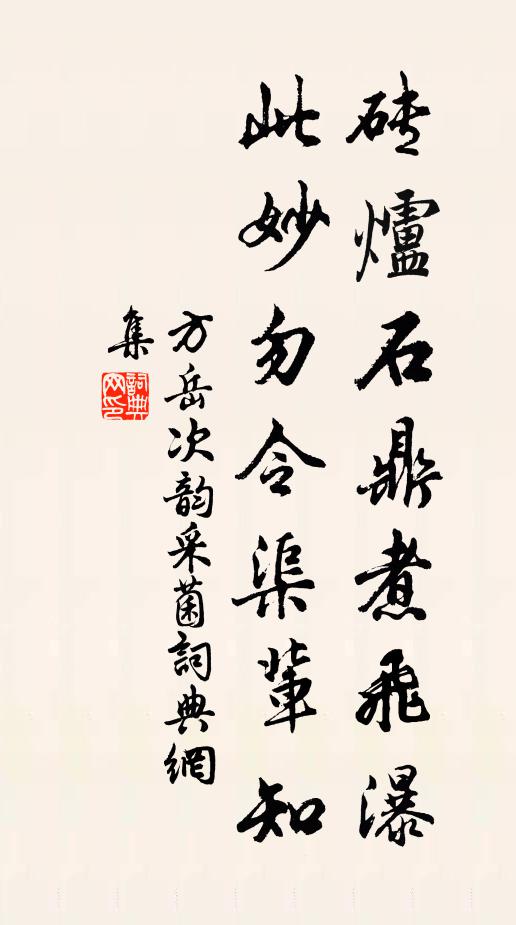 砖爐石鼎煮飛瀑
此妙勿令渠輩知
方岳次韵采菌詞典網
集
詞典
网印